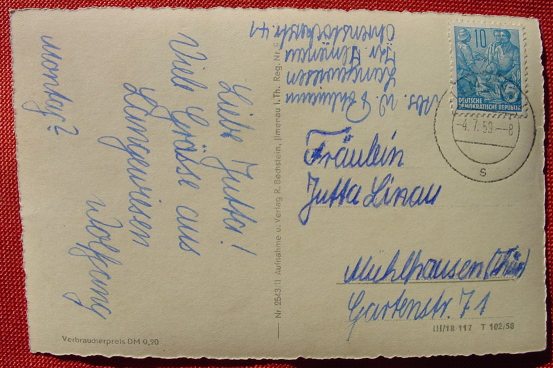 Montag?
Liebe Jutta!
Viele Grüsse aus
Langewiesen
Wolfgang
Verbraucherpreis DM 0,20
Nr. 25(3.1) Aufnahme u. Verlag R. Bechstein, Ilmenau i. Th. Reg. Nr.
Abs. W.
Langewiesen
Kr. Ilmenau
Ohrenstockerstr. 41
10
DEUTSCHE
DEMOKRATISCHE REPUBLIK
-4.7.59.--8
s
Fräulein
Jutta Linau
Mühlhausen (Thür)
Gartenstr. 71
III/18 117 T 102/58